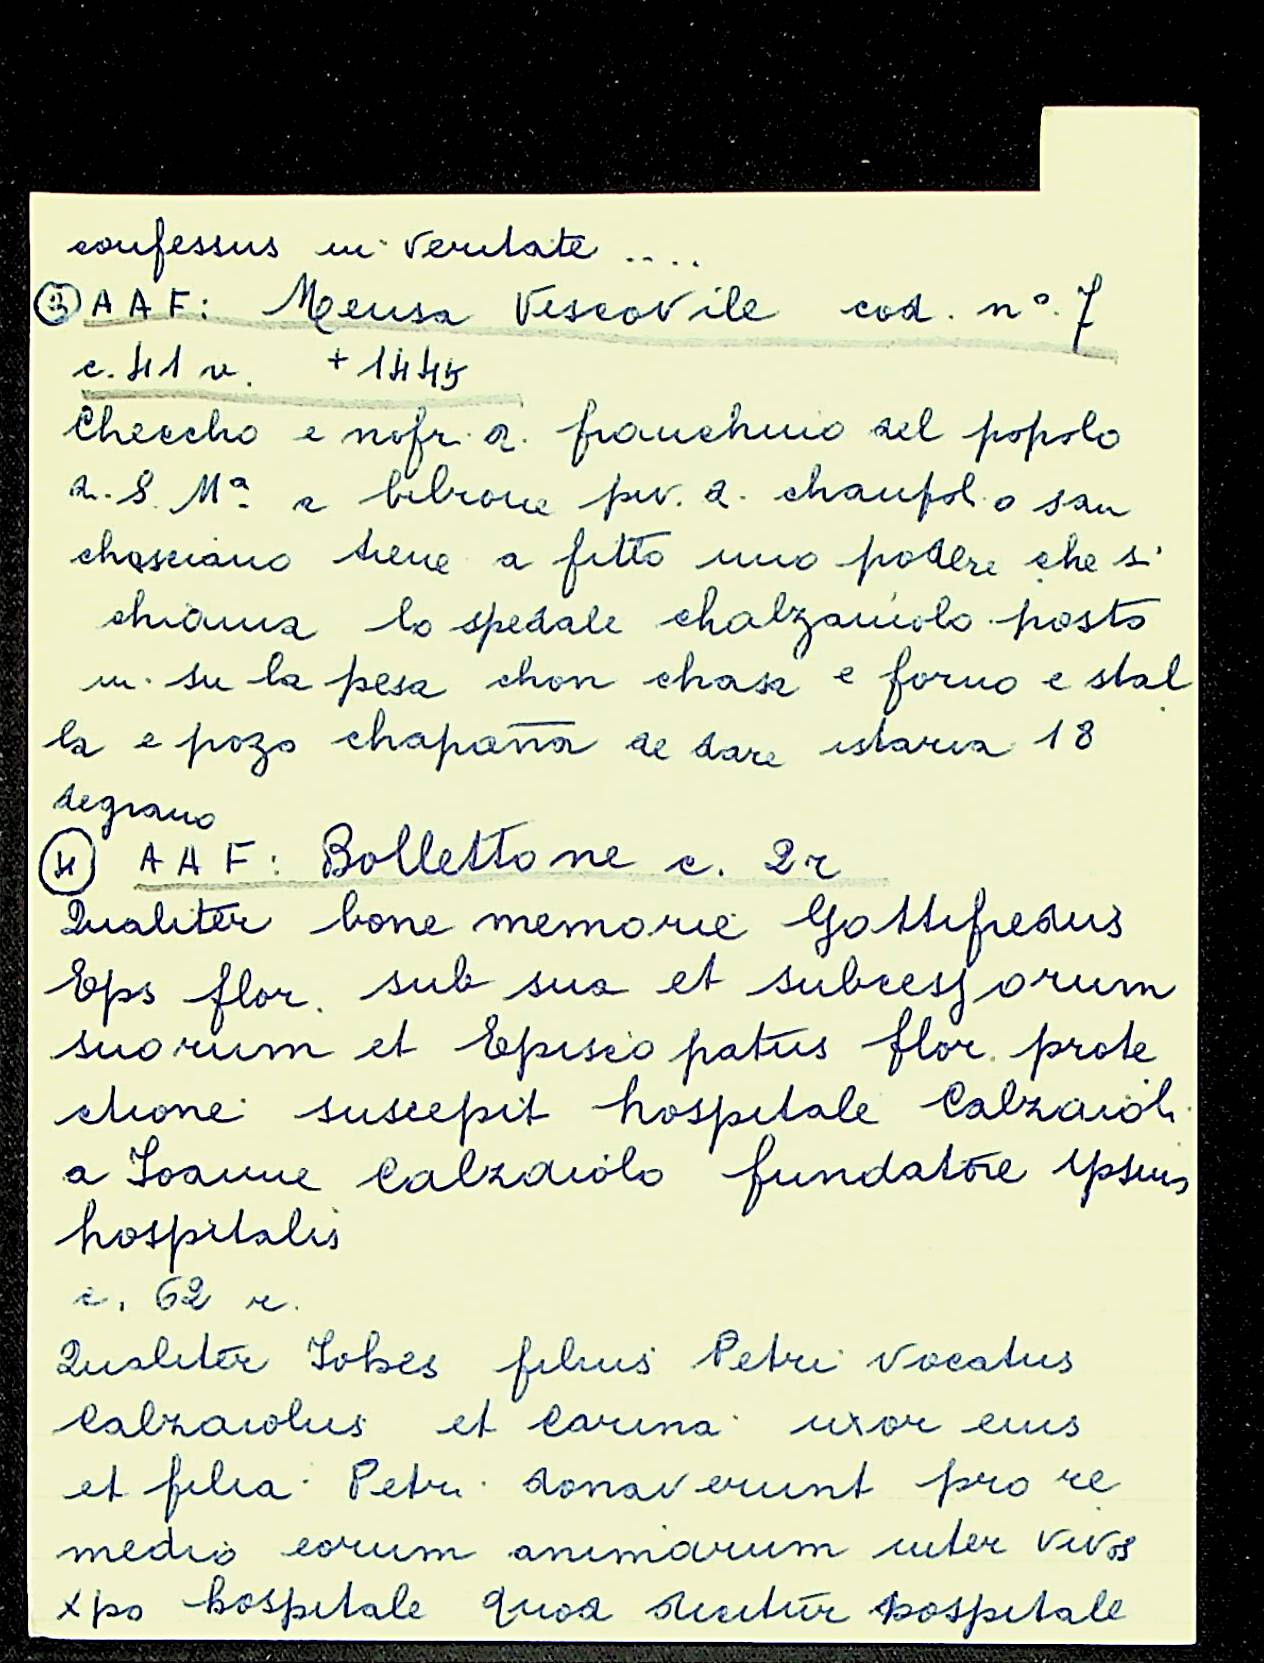 confessus in veritate ....
③ A A F: Mensa Vescovile cod. n°. 7
c. 41 v. + 1445
Checcho e nofr. d. franchino del popolo
d. S. Mª a bibrone piv. d. chanpol. o san
chasciano tiene a fitto uno podere che si
chiama lo spedale chalzaiuolo posto
in su la pesa chon chasa e forno e stal
la e pozo chapāna de dare istaria 18
degrano
④ A A F: Bollettone c. 2r
Qualiter bone memorie Gottifredus
Eps flor. sub sua et subcessorum
suorum et Episcopatus flor. prote
ctione suscepit hospitale Calzaioli
a Ioanne Calzaiolo fundatore ipsius
hospitalis
c. 62 r.
Qualiter Iohes filius Petri vocatus
Calzaiolus et Carina uxor eius
et filia Petri donaverunt pro re
medio eorum animarum inter vivos
xpo hospitale quod dicitur hospitale